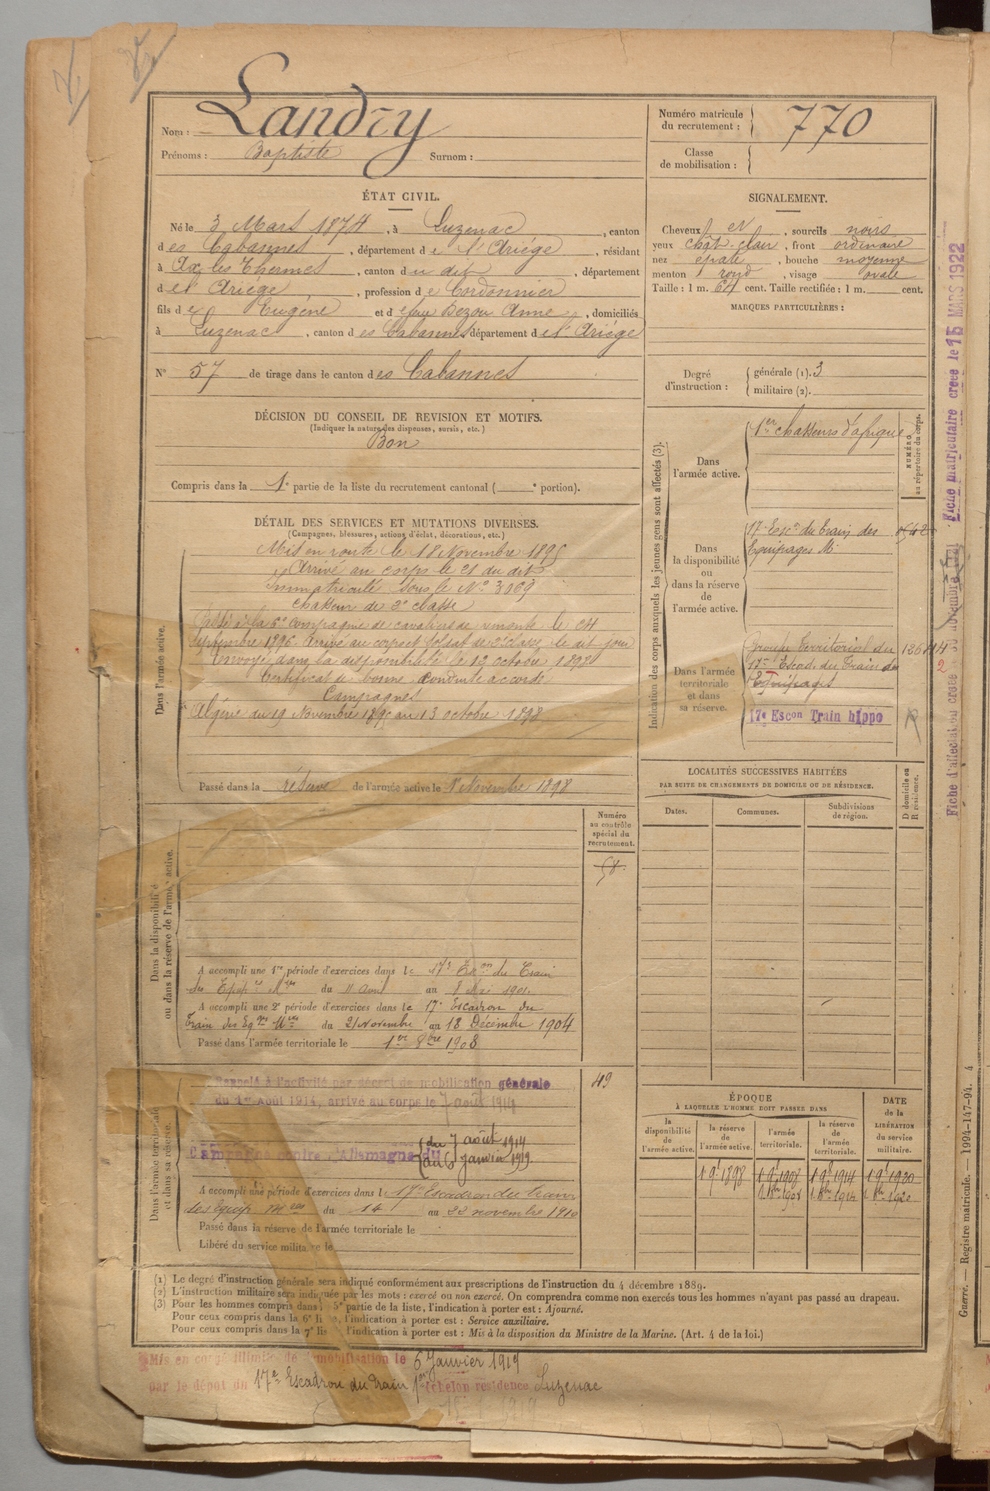 Nom : Landry
Prénoms : Baptiste Surnom :
Numéro matricule du recrutement : 770
Classe de mobilisation :
ÉTAT CIVIL.
Né le 3 Mars 1874, à Luzenac, canton
des Cabannes, département de l'Ariége, résidant
à Ax les Thermes, canton du dit, département
de l'Ariége, profession de Cordonnier
fils de Eugène et d efeu Bezou Anne, domiciliés
à Luzenac, canton des Cabannes département de l'Ariége
N° 57 de tirage dans le canton des Cabannes
SIGNALEMENT.
Cheveux et, sourcils noirs
yeux chât. clair, front ordinaire
nez épaté, bouche moyenne
menton rond, visage ovale
Taille : 1 m. 64 cent. Taille rectifiée : 1 m. cent.
MARQUES PARTICULIÈRES :
Degré d'instruction : générale (1). 3
militaire (2).
DÉCISION DU CONSEIL DE REVISION ET MOTIFS.
(Indiquer la nature des dispenses, sursis, etc.)
Bon
Compris dans la 1e partie de la liste du recrutement cantonal ( e portion).
DÉTAIL DES SERVICES ET MUTATIONS DIVERSES.
(Campagnes, blessures, actions d'éclat, décorations, etc.)
Dans l'armée active.
Mis en route le 18 Novembre 1895
Arrivé au corps le 21 du dit
Immatriculé sous le N° 3069
chasseur de 2e classe
Passé à la 6e Compagnie de cavaliers de remonte le 24
Septembre 1896. Arrivé au corps et soldat de 2e classe le dit jour
Envoyé dans la disponibilité le 13 octobre 1898
Certificat de bonne conduite accordé
Campagnes
Algérie du 19 Novembre 1895 au 13 octobre 1898
Passé dans la réserve de l'armée active le 1er Novembre 1898
Indication des corps auxquels les jeunes gens sont affectés (3).
NUMÉRO au répertoire du corps.
Dans l'armée active.
1er chasseurs d'afrique
Dans la disponibilité ou dans la réserve de l'armée active.
17e Esc.on du train des
Équipages M.
Dans l'armée territoriale et dans sa réserve.
Groupe Territorial du
17e Escad. du Train des
Equipages
17e Escon Train hippo
R
LOCALITÉS SUCCESSIVES HABITÉES
PAR SUITE DE CHANGEMENTS DE DOMICILE OU DE RÉSIDENCE.
Dates. Communes. Subdivisions de région. D domicile ou R résidence.
Dans la disponibilité ou dans la réserve de l'armée active.
Numéro au contrôle spécial du recrutement.
58
A accompli une 1re période d'exercices dans le 17e Esc.on du Train
des Equip.es M.res du 11 avril au 8 Mai 1901.
A accompli une 2e période d'exercices dans le 17e Escadron du
Train des Eq.ges M.res du 21 Novembre au 18 Décembre 1904
Passé dans l'armée territoriale le 1er 8bre 1908
Dans l'armée territoriale et dans sa réserve.
49
Rappelé à l'activité par décret de mobilisation générale
du 1er Août 1914, arrivé au corps le 7 août 1914
Campagne contre l'Allemagne du
{du 7 août 1914
{au 5 Janvier 1919.
A accompli une période d'exercices dans le 17e Escadron du train
des équip. M.res du 14 au 22 novembre 1910
Passé dans la réserve de l'armée territoriale le
Libéré du service militaire le
ÉPOQUE
À LAQUELLE L'HOMME DOIT PASSER DANS
la disponibilité de l'armée active.
la réserve de l'armée active.
l'armée territoriale.
la réserve de l'armée territoriale.
DATE de la LIBÉRATION du service militaire.
(1) Le degré d'instruction générale sera indiqué conformément aux prescriptions de l'instruction du 4 décembre 1889.
(2) L'instruction militaire sera indiquée par les mots : exercé ou non exercé. On comprendra comme non exercés tous les hommes n'ayant pas passé au drapeau.
(3) Pour les hommes compris dans la 5e partie de la liste, l'indication à porter est : Ajourné.
Pour ceux compris dans la 6e liste, l'indication à porter est : Service auxiliaire.
Pour ceux compris dans la 7e liste, l'indication à porter est : Mis à la disposition du Ministre de la Marine. (Art. 4 de la loi.)
Mis en congé illimité de démobilisation le 5 Janvier 1919
par le dépôt du 17e Escadron du train 1er échelon résidence Luzenac
Fiche matriculaire créée le 15 MARS 1922
Guerre. — Registre matricule. — 1994-147-94. 4